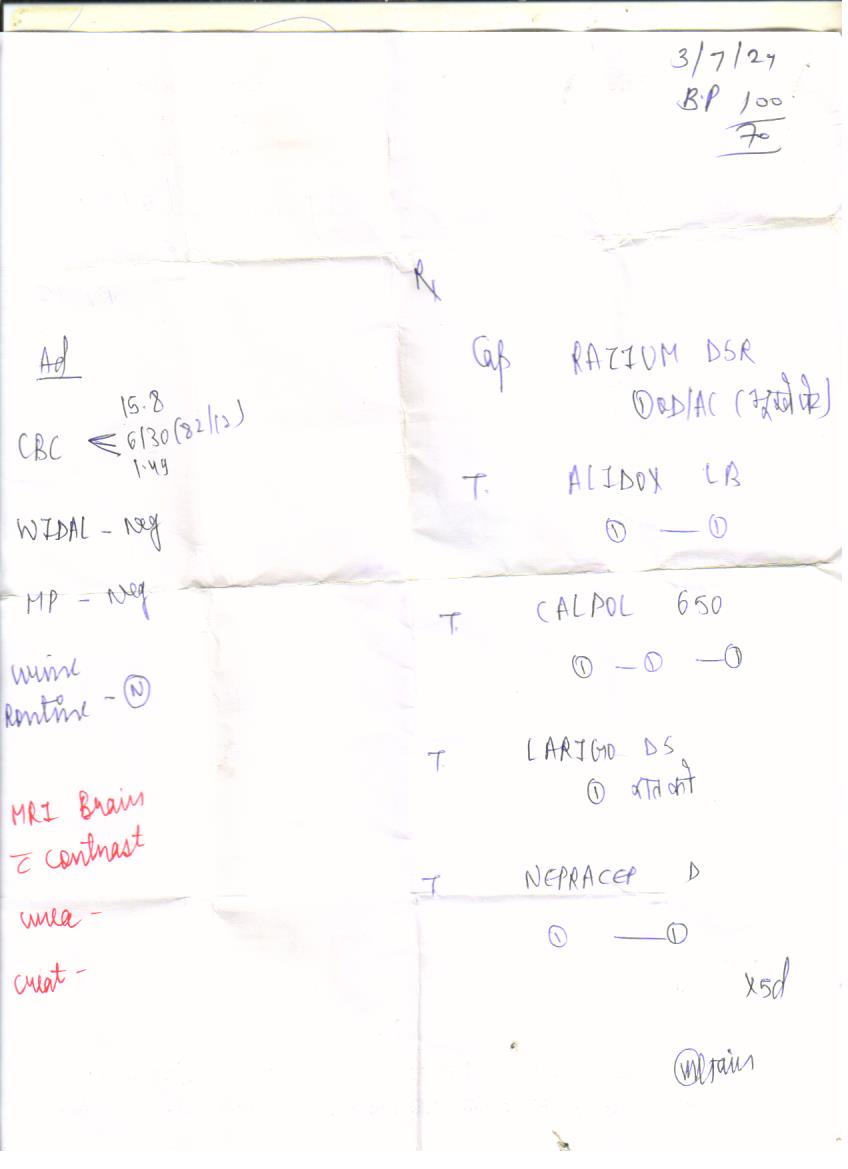 3/7/24
B.P 100
70
Rx
Ad
CBC
15.8
6130 (82/12)
1.49
WIDAL - Neg
MP - Neg
urine
Routine - N
MRI Brain
c̄ contrast
urea -
creat -
Cap RAZIUM DSR
1 OD/AC (
T. ALIDOX LB
1 — 1
T. CALPOL 650
1 — 1 — 1
T. LARIGO DS
1 रात को
T NEPRACEP D
1 — 1
x5d